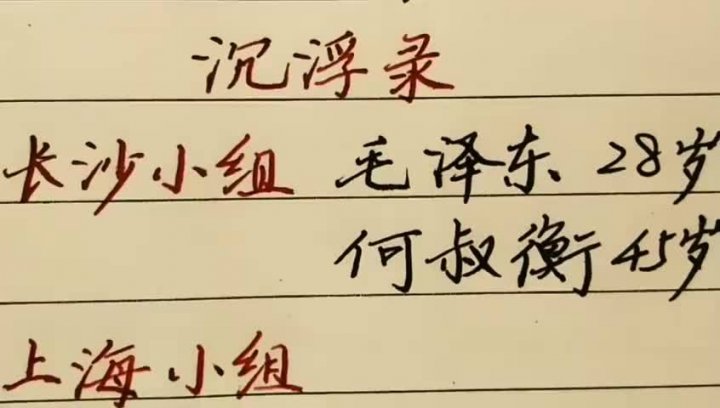 沉浮录
长沙小组 毛泽东 28岁
何叔衡 45岁
上海小组